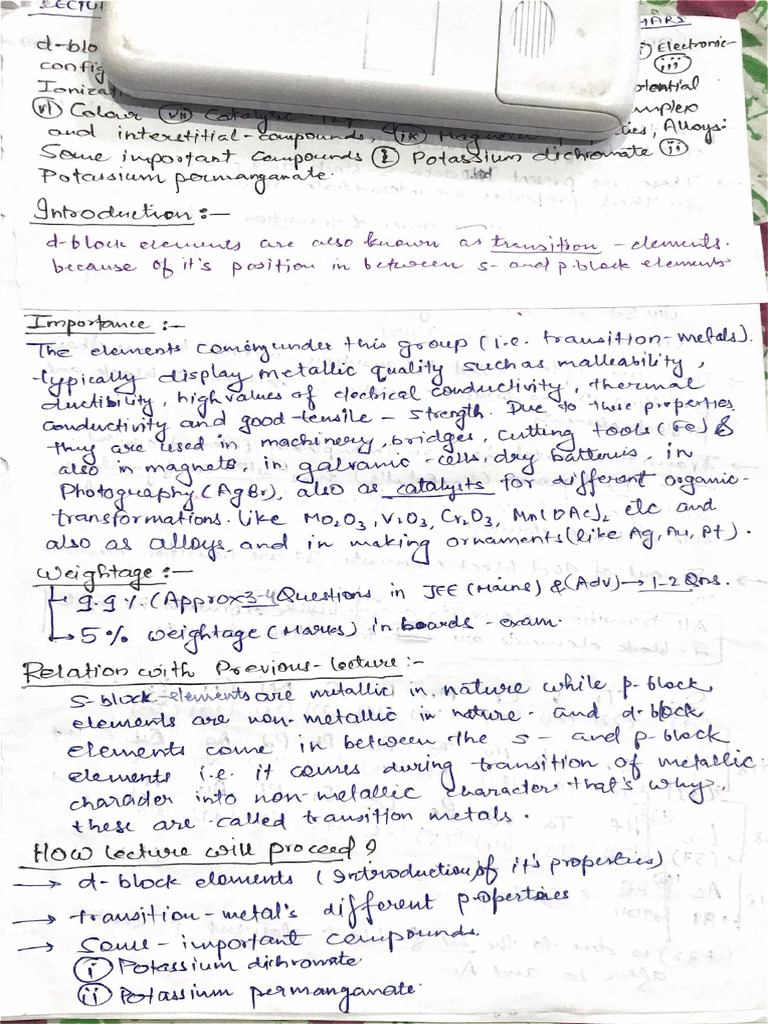 LECTU
d-blo i) Electronic-
config iii
Ionizati otential
vi Colour vii Catalytic mplex
and interstitial-compounds, ix Magnetic ties, Alloys:
Some important Compounds i Potassium dichromate ii
Potassium permanganate.
Introduction:-
d-block elements are also known as transition-elements.
because of it's position in between s- and p-block elements
Importance:-
The elements coming under this group (i.e. transition-metals).
typically display metallic quality such as malleability,
ductibility, high values of electrical conductivity, thermal
conductivity and good-tensile-strength. Due to these properties
they are used in machinery, bridges, cutting tools (Fe) &
also in magnets, in galvanic-cells, dry batteries, in
Photography (AgBr), also as catalysts for different organic-
transformations. like Mo2O3, V2O3, Cr2O3, Mn(OAc)2 etc and
also as alloys and in making ornaments (like Ag, Au, Pt).
Weightage:-
→ 9.9% (Approx 3-4 Questions in JEE (Mains) & (Adv) → 1-2 Qns.
→ 5% weightage (Marks) in boards-exam.
Relation with Previous-lecture:-
S-block-elements are metallic in nature while p-block
elements are non-metallic in nature. and d-block
elements come in between the s- and p-block
elements i.e. it comes during transition of metallic
character into non-metallic character that's why,
these are called transition metals.
How lecture will proceed?
→ d-block elements (Introduction of it's properties)
→ transition-metal's different properties
→ Some-important compounds.
i Potassium dichromate
ii Potassium permanganate.